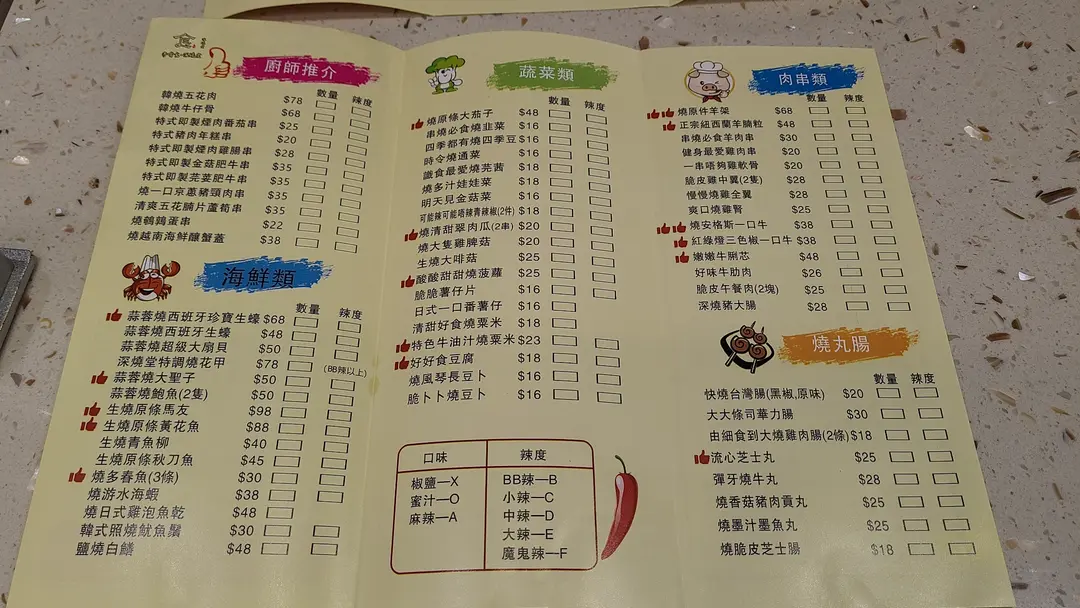 廚師推介
數量 辣度
韓燒五花肉 $78
韓燒牛仔骨 $68
特式即製煙肉番茄串 $25
特式豬肉年糕串 $20
特式即製煙肉雞腸串 $28
特式即製金菇肥牛串 $35
特式即製芫荽肥牛串 $35
燒一口京蔥豬頸肉串 $35
清爽五花腩片蘆荀串 $35
燒鵪鶉蛋串 $22
燒越南海鮮釀蟹蓋 $38
海鮮類
數量 辣度
蒜蓉燒西班牙珍寶生蠔 $68
蒜蓉燒西班牙生蠔 $48
蒜蓉燒超級大扇貝 $50
深燒堂特調燒花甲 $78 (BB辣以上)
蒜蓉燒大聖子 $50
蒜蓉燒鮑魚(2隻) $50
生燒原條馬友 $98
生燒原條黃花魚 $88
生燒青魚柳 $40
生燒原條秋刀魚 $45
燒多春魚(3條) $30
燒游水海蝦 $38
燒日式雞泡魚乾 $48
韓式照燒魷魚鬚 $30
鹽燒白鱔 $48
蔬菜類
數量 辣度
燒原條大茄子 $48
串燒必食燒韭菜 $16
四季都有燒四季豆 $16
時令燒通菜 $16
識食最愛燒芫茜 $16
燒多汁娃娃菜 $16
明天見金菇菜 $16
可能辣可能唔辣青辣椒(2件) $18
燒清甜翠肉瓜(2串) $20
燒大隻雞脾菇 $20
生燒大啡菇 $25
酸酸甜甜燒菠蘿 $25
脆脆薯仔片 $16
日式一口番薯仔 $16
清甜好食燒粟米 $18
特色牛油汁燒粟米 $23
好好食豆腐 $18
燒風琴長豆卜 $16
脆卜卜燒豆卜 $16
口味 辣度
椒鹽—X
蜜汁—O
麻辣—A
BB辣—B
小辣—C
中辣—D
大辣—E
魔鬼辣—F
肉串類
數量 辣度
燒原件羊架 $68
正宗紐西蘭羊腩粒 $48
串燒必食羊肉串 $30
健身最愛雞肉串 $20
一串唔夠雞軟骨 $20
脆皮雞中翼(2隻) $28
慢慢燒雞全翼 $28
爽口燒雞腎 $25
燒安格斯一口牛 $38
紅綠燈三色椒一口牛 $38
嫩嫩牛脷芯 $48
好味牛肋肉 $26
脆皮午餐肉(2塊) $25
深燒豬大腸 $28
燒丸腸
數量 辣度
快燒台灣腸(黑椒,原味) $20
大大條司華力腸 $30
由細食到大燒雞肉腸(2條) $18
流心芝士丸 $25
彈牙燒牛丸 $28
燒香菇豬肉貢丸 $25
燒墨汁墨魚丸 $25
燒脆皮芝士腸 $18